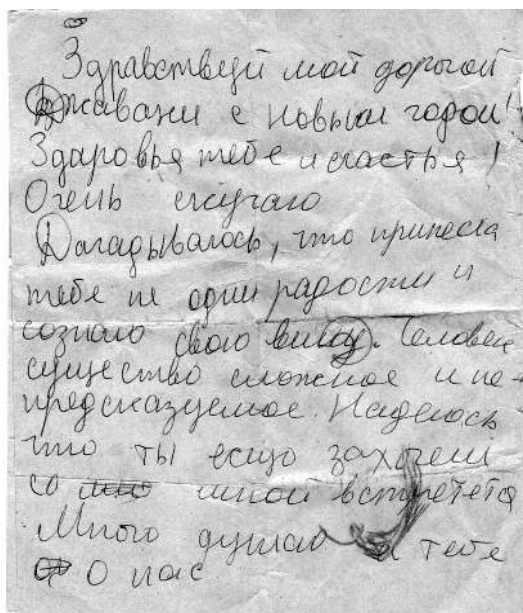 Здравствуй мой дорогой
Джавани с новым годом!
Здаровья тебе и счастья!
Очень скучаю
Догадываюсь, что принесла
тебе не одни радости и
сознаю свою вину. Человек
существо сложное и не-
предсказуемое. Надеюсь
что ты есщо захочеш
со мной встретется
Много думаю о тебе
О нас